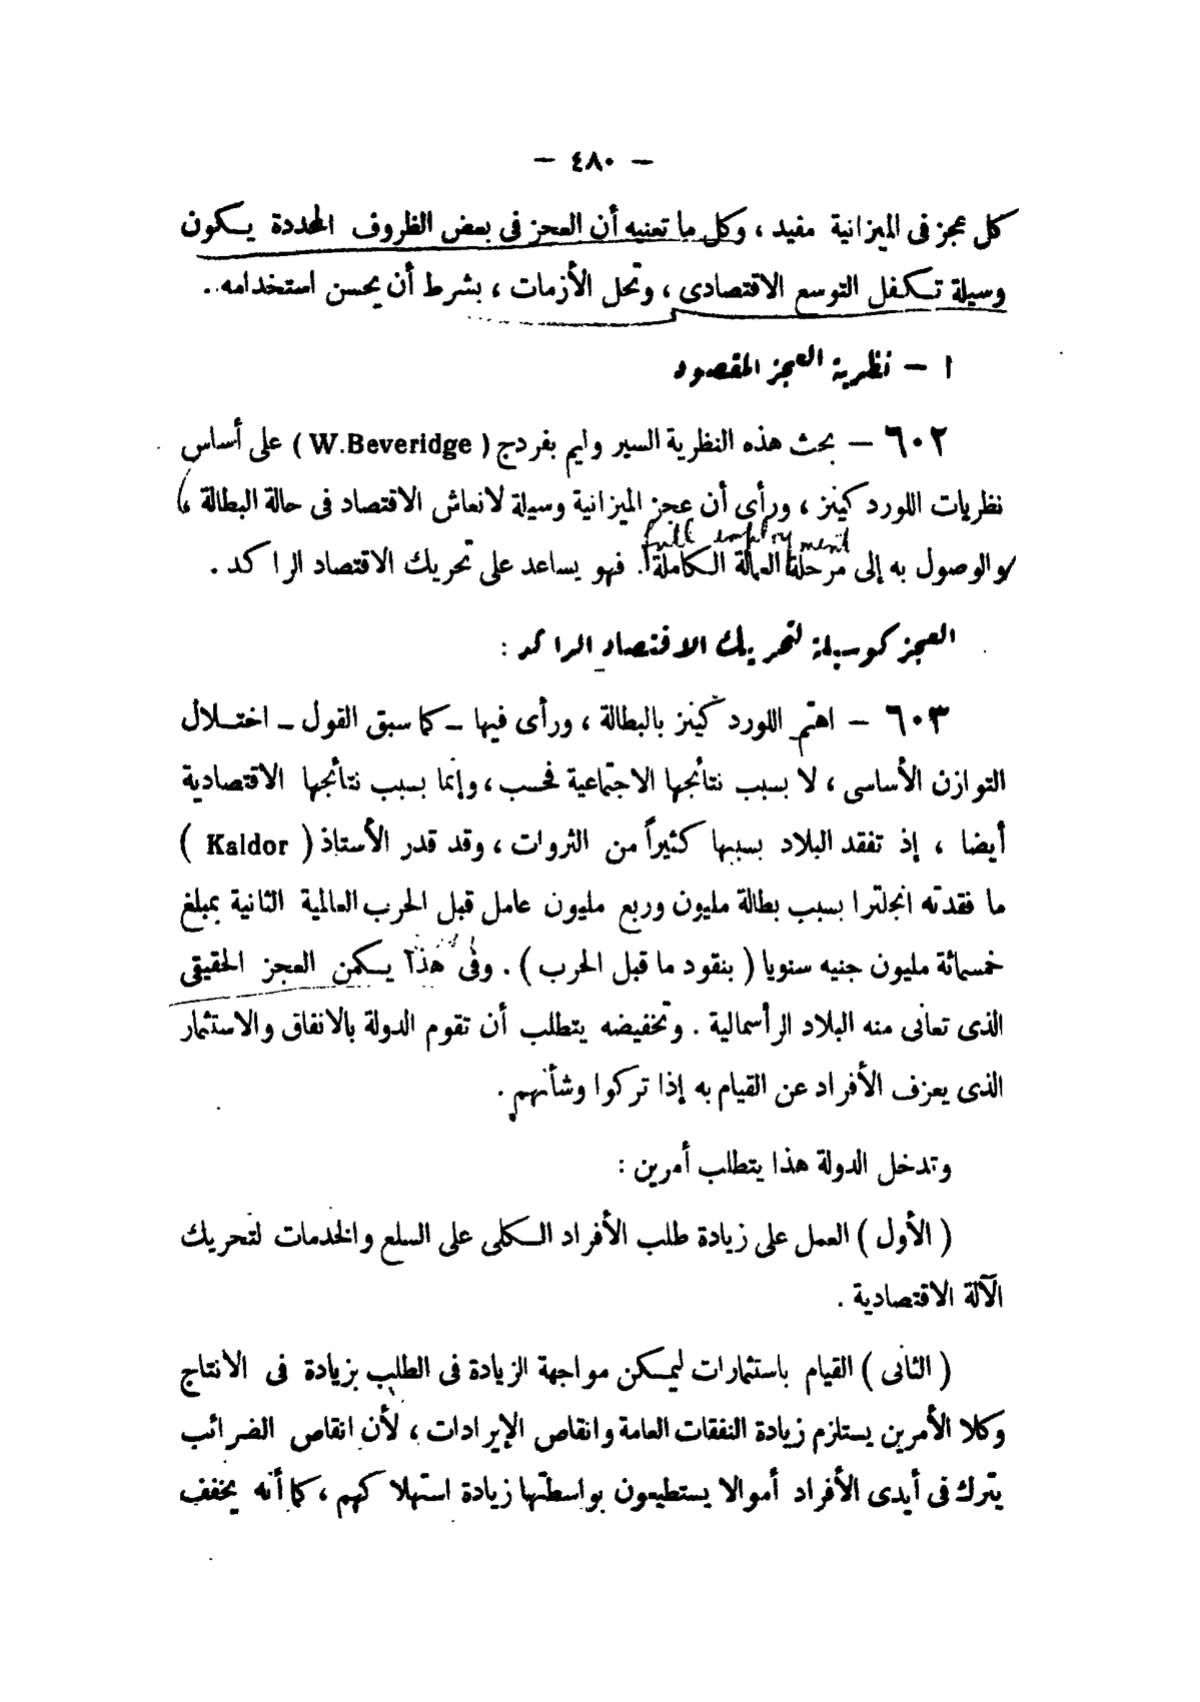 — ٤٨٠ —
كل عجز فى الميزانية مفيد ، وكل ما تعنيه أن العجز فى بعض الظروف المحددة يكون
وسيلة تكفل التوسع الاقتصادى ، وتحل الأزمات ، بشرط أن يحسن استخدامه .
١ — نظرية العجز المقصود
٦٠٢ — بحث هذه النظرية السير وليم بفردج ( W.Beveridge ) على أساس
نظريات اللورد كينز ، ورأى أن عجز الميزانية وسيلة لانعاش الاقتصاد فى حالة البطالة ،
full employment
والوصول به إلى مرحلة العمالة الكاملة . فهو يساعد على تحريك الاقتصاد الراكد .
العجز كوسيلة لتحريك الاقتصاد الراكد :
٦٠٣ — اهتم اللورد كينز بالبطالة ، ورأى فيها ــ كما سبق القول ــ اختلال
التوازن الأساسى ، لا بسبب نتائجها الاجتماعية فحسب ، وإنما بسبب نتائجها الاقتصادية
أيضا ، إذ تفقد البلاد بسببها كثيراً من الثروات ، وقد قدر الأستاذ ( Kaldor )
ما فقدته انجلترا بسبب بطالة مليون وربع مليون عامل قبل الحرب العالمية الثانية بمبلغ
خمسمائة مليون جنيه سنويا ( بنقود ما قبل الحرب ) . وفى هذا يكمن العجز الحقيقى
الذى تعانى منه البلاد الرأسمالية . وتخفيضه يتطلب أن تقوم الدولة بالانفاق والاستثمار
الذى يعزف الأفراد عن القيام به إذا تركوا وشأنهم .
وتدخل الدولة هذا يتطلب أمرين :
( الأول ) العمل على زيادة طلب الأفراد الكلى على السلع والخدمات لتحريك
الآلة الاقتصادية .
( الثانى ) القيام باستثمارات ليمكن مواجهة الزيادة فى الطلب بزيادة فى الانتاج
وكلا الأمرين يستلزم زيادة النفقات العامة وانقاص الإيرادات ، لأن انقاص الضرائب
يترك فى أيدى الأفراد أموالا يستطيعون بواسطتها زيادة استهلاكهم ، كما أنه يخفف